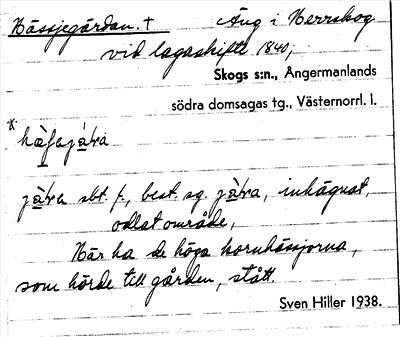 Hässjegärdan. † Äng i Herrskog
vid lagaskifte 1840,
Skogs s:n., Ångermanlands
södra domsagas tg., Västernorrl. l.
jä̀ra sbt. f., best. sg. jä̀ra, inhägnat,
odlat område,
Här ha de höga kornhässjorna,
som hörde till gården, stått.
Sven Hiller 1938.